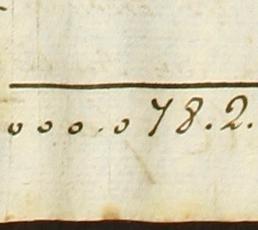 0 0 0 . 0 78.2.